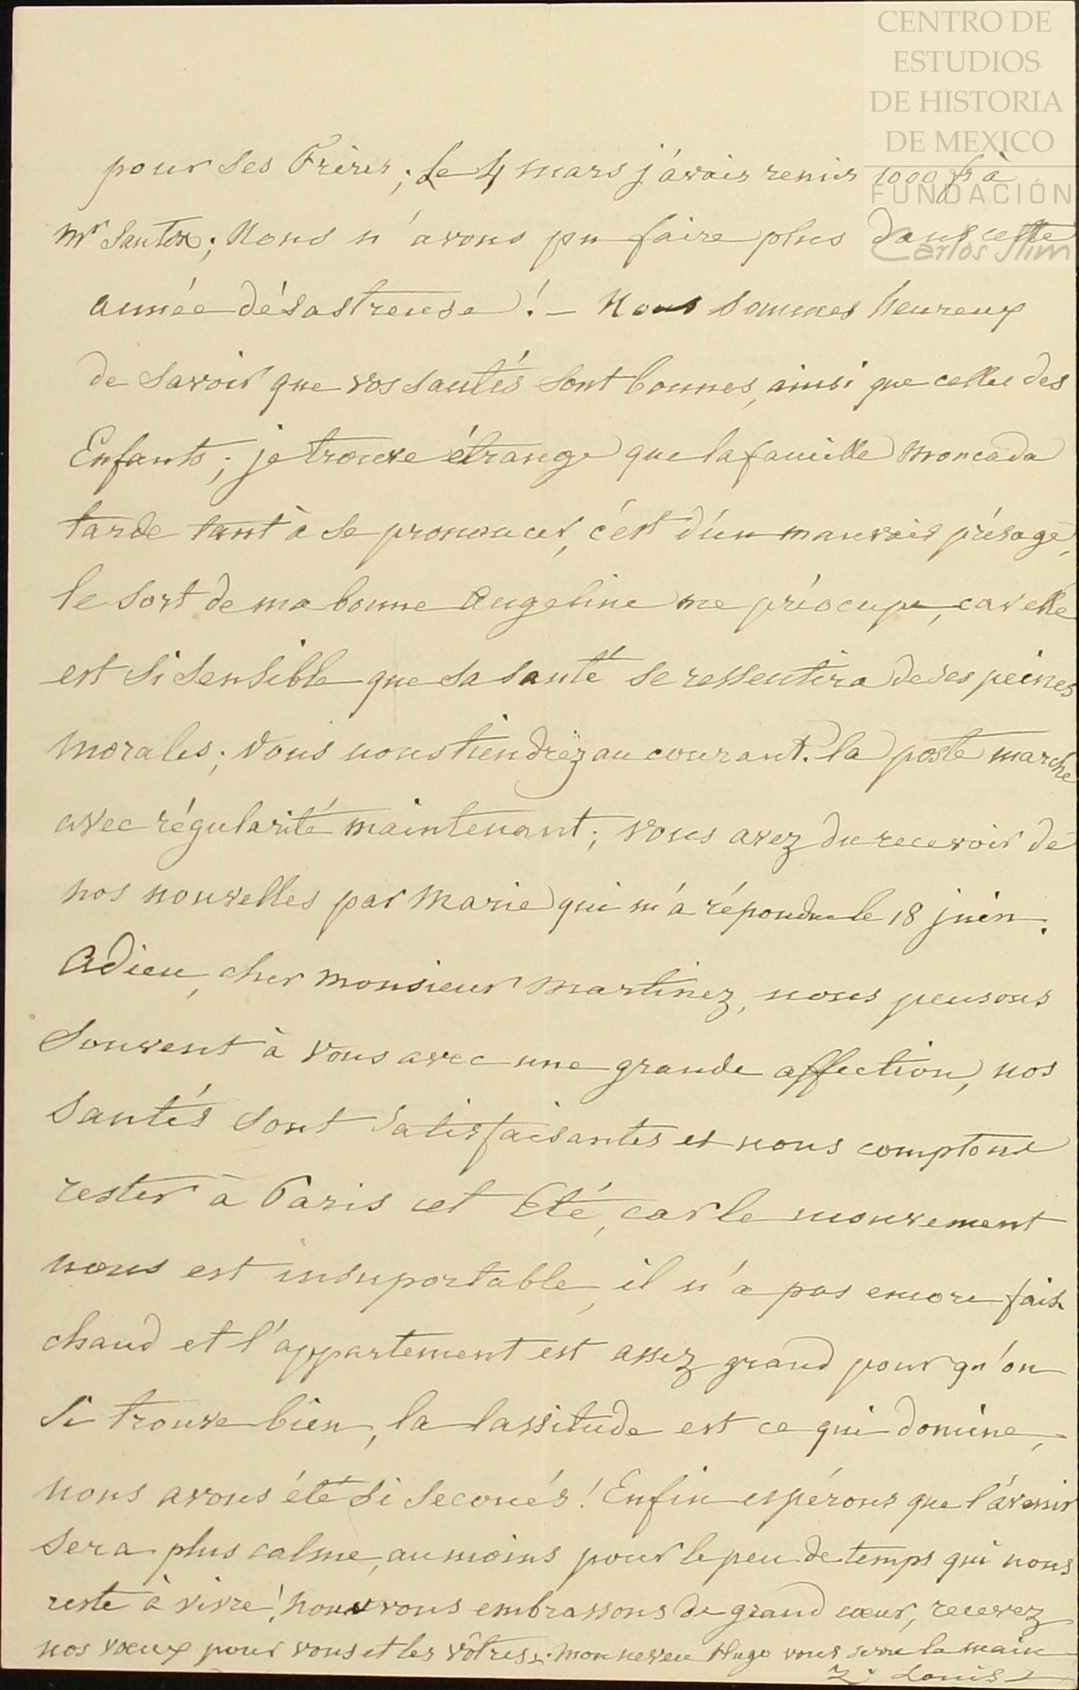 CENTRO DE
ESTUDIOS
DE HISTORIA
DE MEXICO
FUNDACIÓN
Carlos Slim
pour ses Frères; le 4 mars j'avais remis 1000 f à
Mr Santos; Nous n'avons pu faire plus dans cette
année désastreuse! – Nous sommes heureux
de savoir que vos santés sont bonnes, ainsi que celles des
Enfants; je trouve étrange que la famille Moncada
tarde tant à se prononcer, c'est d'un mauvais présage,
le sort de ma bonne Angeline me préocupe, car elle
est si sensible que sa santé se ressentira de ses peines
morales; vous nous tiendrez au courant. la poste marche
avec régularité maintenant; vous avez du recevoir de
nos nouvelles par Marie qui m'a répondu le 18 juin.
Adieu, cher Monsieur Martinez, nous pensons
souvent à vous avec une grande affection, nos
santés sont satisfaisantes et nous comptons
rester à Paris cet Eté, car le mouvement
nous est insuportable, il n'a pas encore fait
chaud et l'appartement est assez grand pour qu'on
si trouve bien, la lassitude est ce qui domine,
nous avons été si secoués! Enfin espérons que l'avenir
sera plus calme, au moins pour le peu de temps qui nous
reste à vivre! Nous vous embrassons de grand cœur, recevez
nos vœux pour vous et les vôtres. mon neveu Hugo vous serre la main
Z. Louis